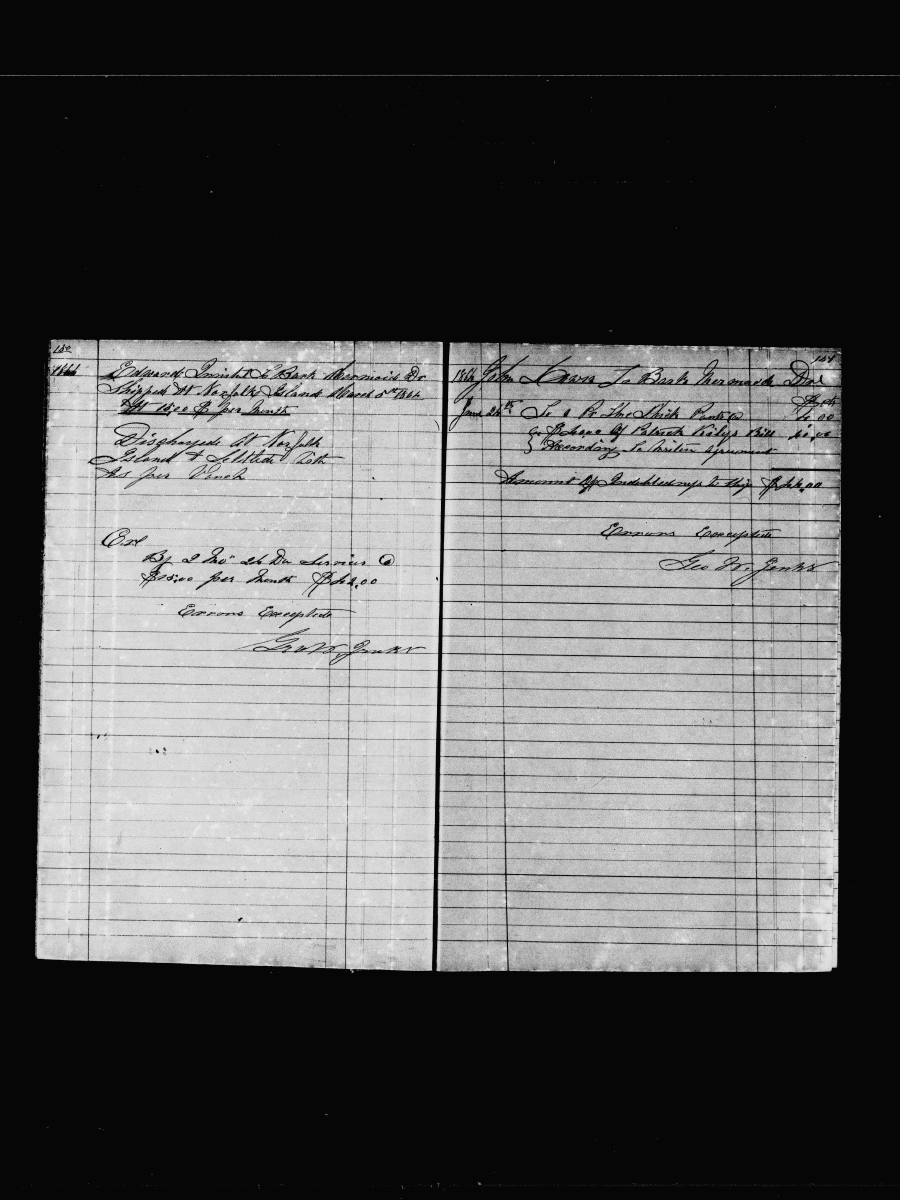 150
Edward Bark Mermaid Dr
Shipped At Norfolk Island March 5th 1864
At 15.00 $ per Month
Discharged At Norfolk
Island & Settled With
As per
Cr
By 2 Mo 24 Da Services @
$15.00 per Month $42.00
Errors Excepted
Geo W. Jenks
151
John To Bark Mermaid Dr
June 24th To 1 Pr Thick Pants @ 4.00
Of Patrick Bill 40.00
According To Writen agreement
Amount Of Indebtedness to Ship $44.00
Errors Excepted
Geo W. Jenks